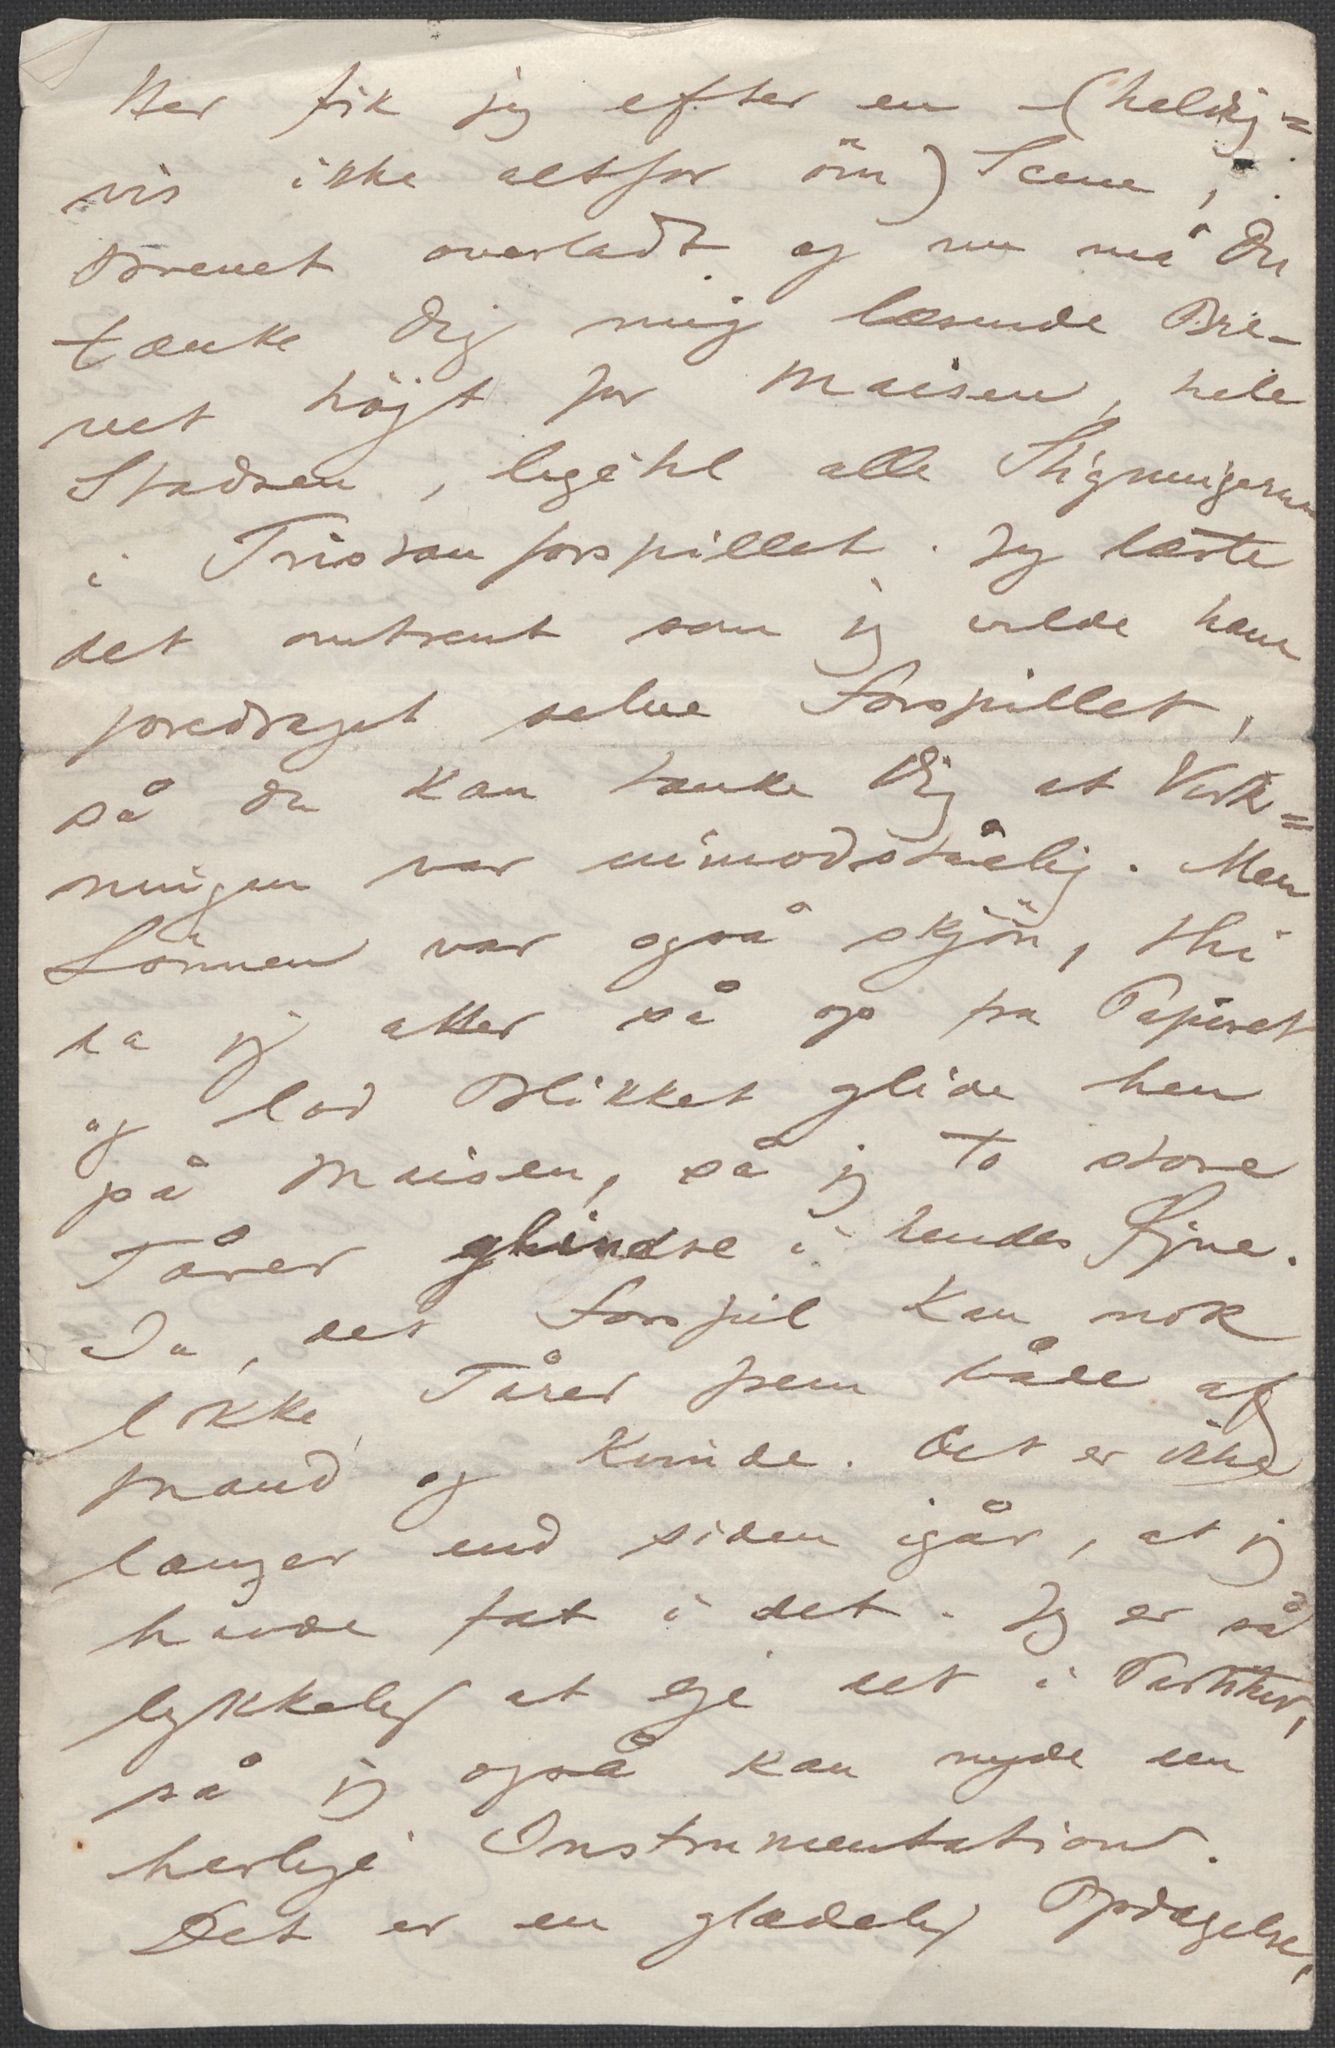 Her fik jeg efter en (heldig=
vis ikke altfor öm) Scene,
Brevet overladt og nu må Du
tænke Dig mig læsende Bre-
vet höjt for Maisen, hele
Stadsen, ligetil alle Stigningerne
i Tristanforspillet. Jeg læste
det omtrent som jeg vilde have
foredraget selve Forspillet,
så Du kan tænke Dig at Virk=
ningen var uimodståelig. Men
Lönnen var også skjön, thi
da jeg atter så op fra Papiret
og lod Blikket glide hen
på Maisen, så jeg to store
Tårer glindse i hendes Øjne.
Ja, det Forspil kan nok
lokke Tårer frem både af
Mand og Kvinde. Det er ikke
længer end siden igår, at jeg
havde fat i det. Jeg er så
lykkelig at eje det i Partitur,
så jeg også kan nyde den
herlige Instrumentation.
Det er en glædelig Opdagelse,